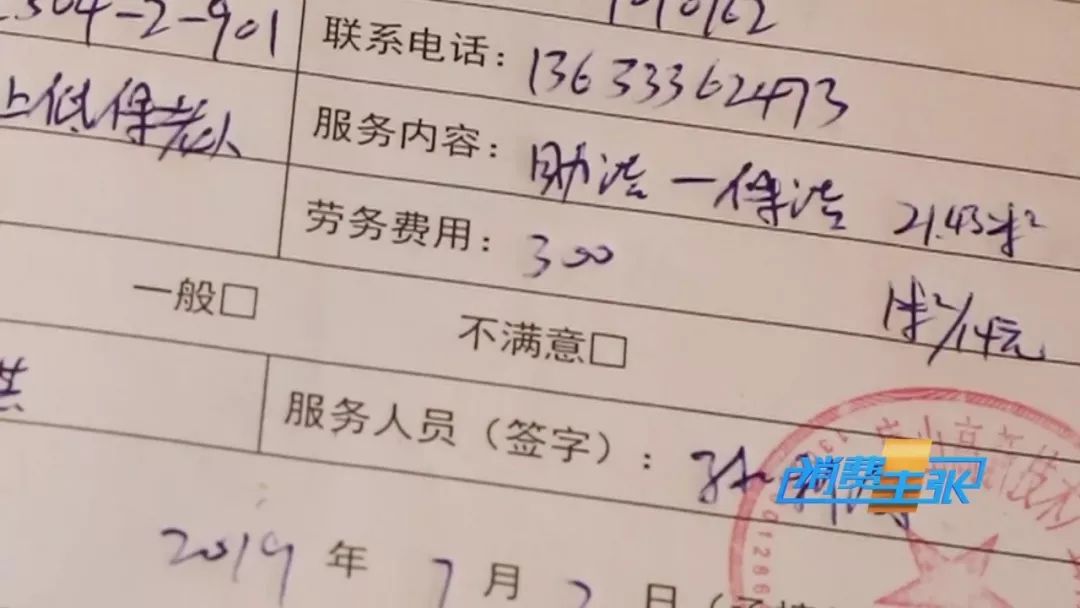 304-2-901
联系电话：13633362473
上低保老人
服务内容：助洁一保洁 21.43米²
劳务费用：300
1米²/14元
一般□
不满意□
服务人员（签字）：
消费主张
2019年7月2日